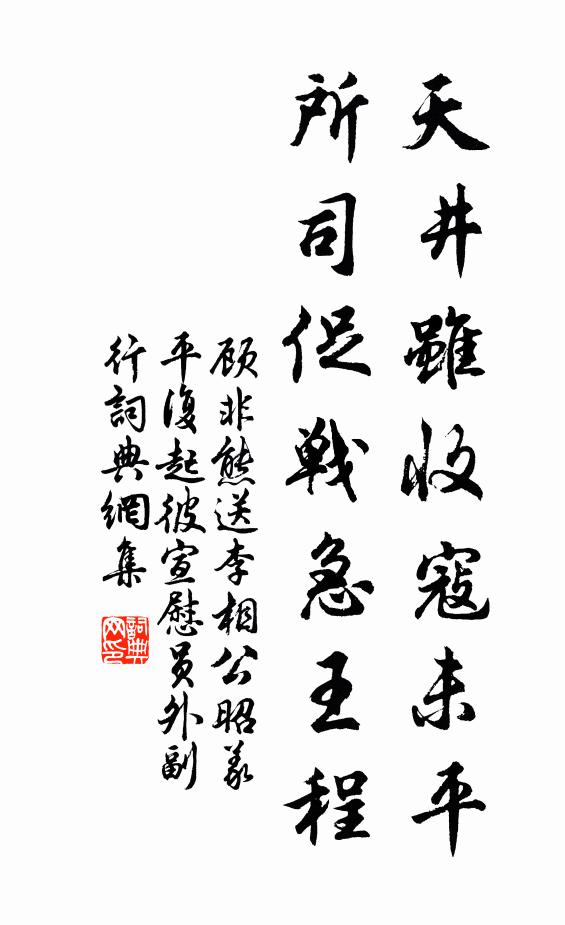 天井雖收寇未平
所司促戰急王程
顾非熊送李相公昭義
平復起彼宣慰员外副
行詞典網集
詞典网印